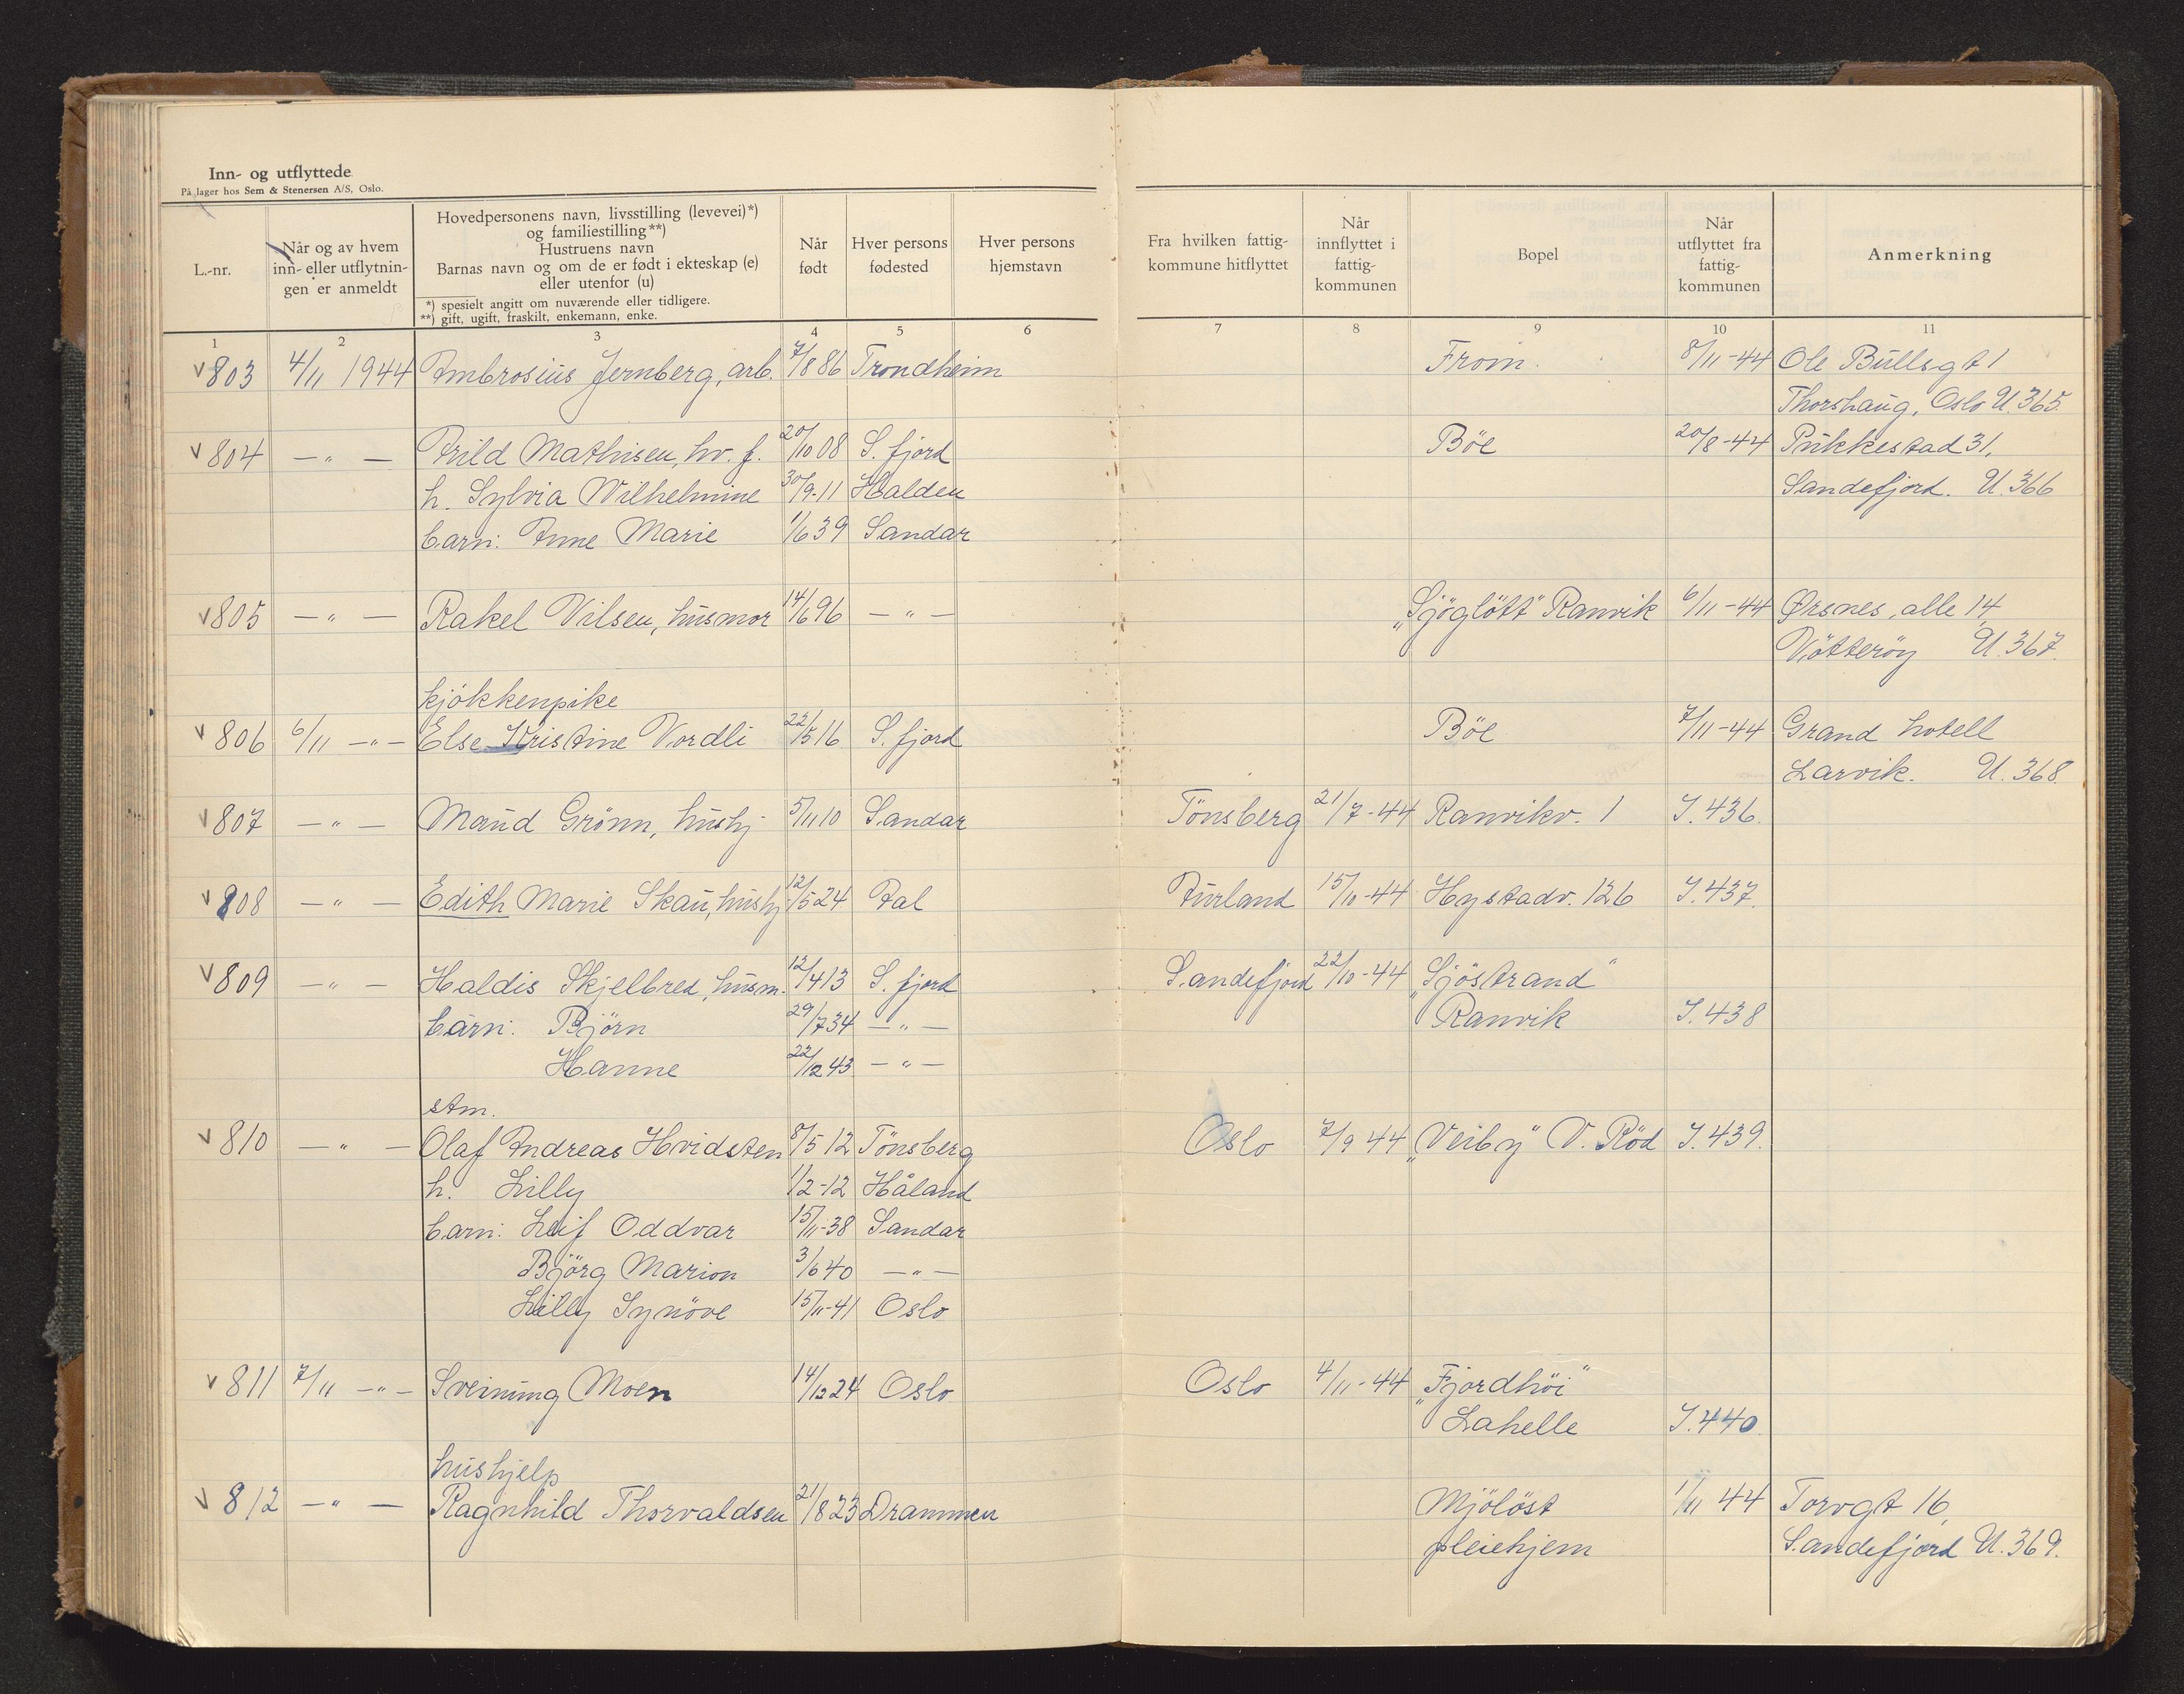 Inn- og utflyttede
På lager hos Sem & Stenersen A/S, Oslo.
L.-nr. | Når og av hvem inn- eller utflytnin-gen er anmeldt | Hovedpersonens navn, livsstilling (levevei)*) og familiestilling**) Hustruens navn Barnas navn og om de er født i ekteskap (e) eller utenfor (u) *) spesielt angitt om nuværende eller tidligere. **) gift, ugift, fraskilt, enkemann, enke. | Når født | Hver persons fødested | Hver persons hjemstavn | Fra hvilken fattig-kommune hitflyttet | Når innflyttet i fattig-kommunen | Bopel | Når utflyttet fra fattig-kommunen | Anmerkning
1 2 3 4 5 6 7 8 9 10 11
v 803 4/11 1944 Ambrosius Jernberg, arb. 7/8 86 Trondheim From. 8/11-44 Ole Bullsgt 1
Thorshaug, Oslo U.365.
v 804 —"— Arild Mathisen, hv. f. 20/10 08 S. fjord Böe 20/8-44 Pukkestad 31,
h. Sylvia Wilhelmine 30/9-11 Halden Sandefjord. U.366
barn: Anne Marie 1/6 39 Sandar
v 805 —"— Rakel Nilsen, husmor 14/6 96 —"— „Sjöglött" Ranvik 6/11-44 Ørsnes, alle 14,
Nötteröy U.367.
kjökkenpike
v 806 6/11 —"— Else Kristine Nordli 22/5 16 S. fjord Böe 7/11-44 Grand hotell
Larvik. U.368
v 807 —"— Maud Grönn, hushj 5/11 10 Sandar Tönsberg 21/7-44 Ranvikv. 1 I.436.
v 808 —"— Edith Marie Skau, hushj 12/5 24 Aal Aurland 15/10-44 Hystadv. 126 I.437.
v 809 —"— Haldis Skjelbred, husm. 12/4 13 S. fjord Sandefjord 22/10-44 „Sjöstrand"
barn: Björn 29/7 34 —"— Ranvik I.438
Hanne 22/12 43 —"—
stm.
v 810 —"— Olaf Andreas Hvidsten 8/5 12 Tönsberg Oslo 7/9 44 „Veiby" V. Röd I.439.
h. Lilly 1/2-12 Håland
barn: Leif Oddvar 15/11-38 Sandar
Björg Marion 3/6 40 —"—
Lilly Synöve 15/11-41 Oslo
v 811 7/11 —"— Sveinung Moen 14/12 24 Oslo Oslo 4/11-44 „Fjordhöi"
Lahelle I.440.
hushjelp
v 812 —"— Ragnhild Thorvaldsen 21/8 23 Drammen Mjölöst 1/11 44 Torvgt 16,
pleiehjem Sandefjord U.369.